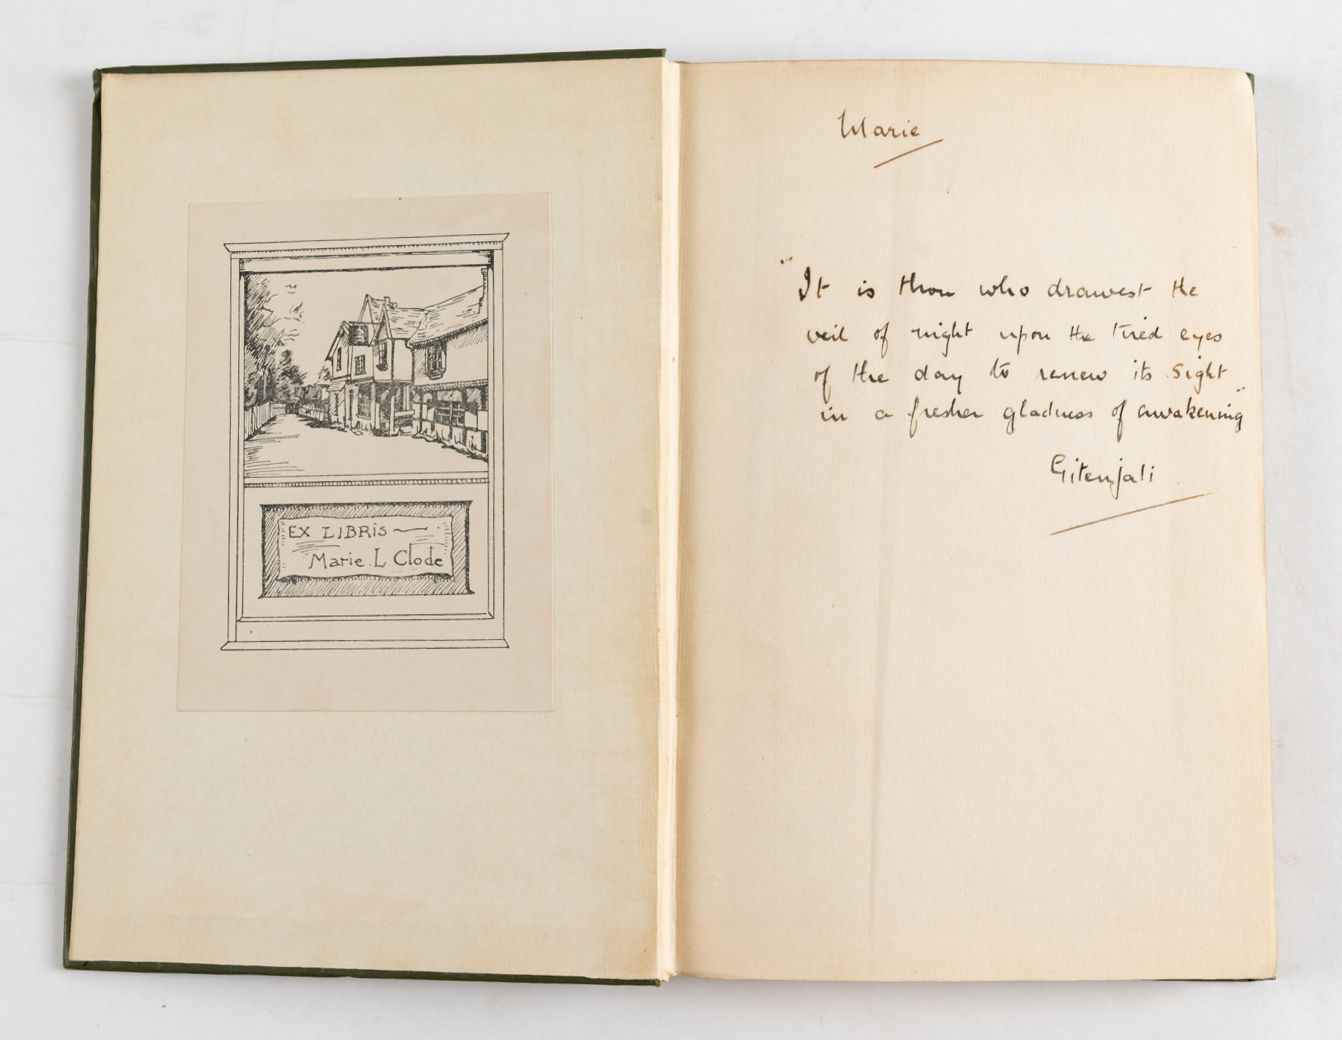 EX LIBRIS
Marie. L Clode
Marie
"It is thou who drawest the
veil of night upon the tired eyes
of the day to renew its sight
in a fresher gladness of awakening"
Gitenjali